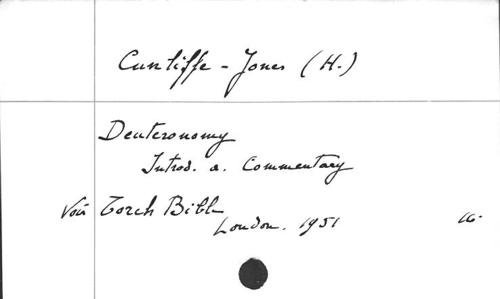 Cunliffe - Jones (H.)
Deuteronomy
Introd. a. Commentary
Voir Torch Bibl
London. 1951 16.